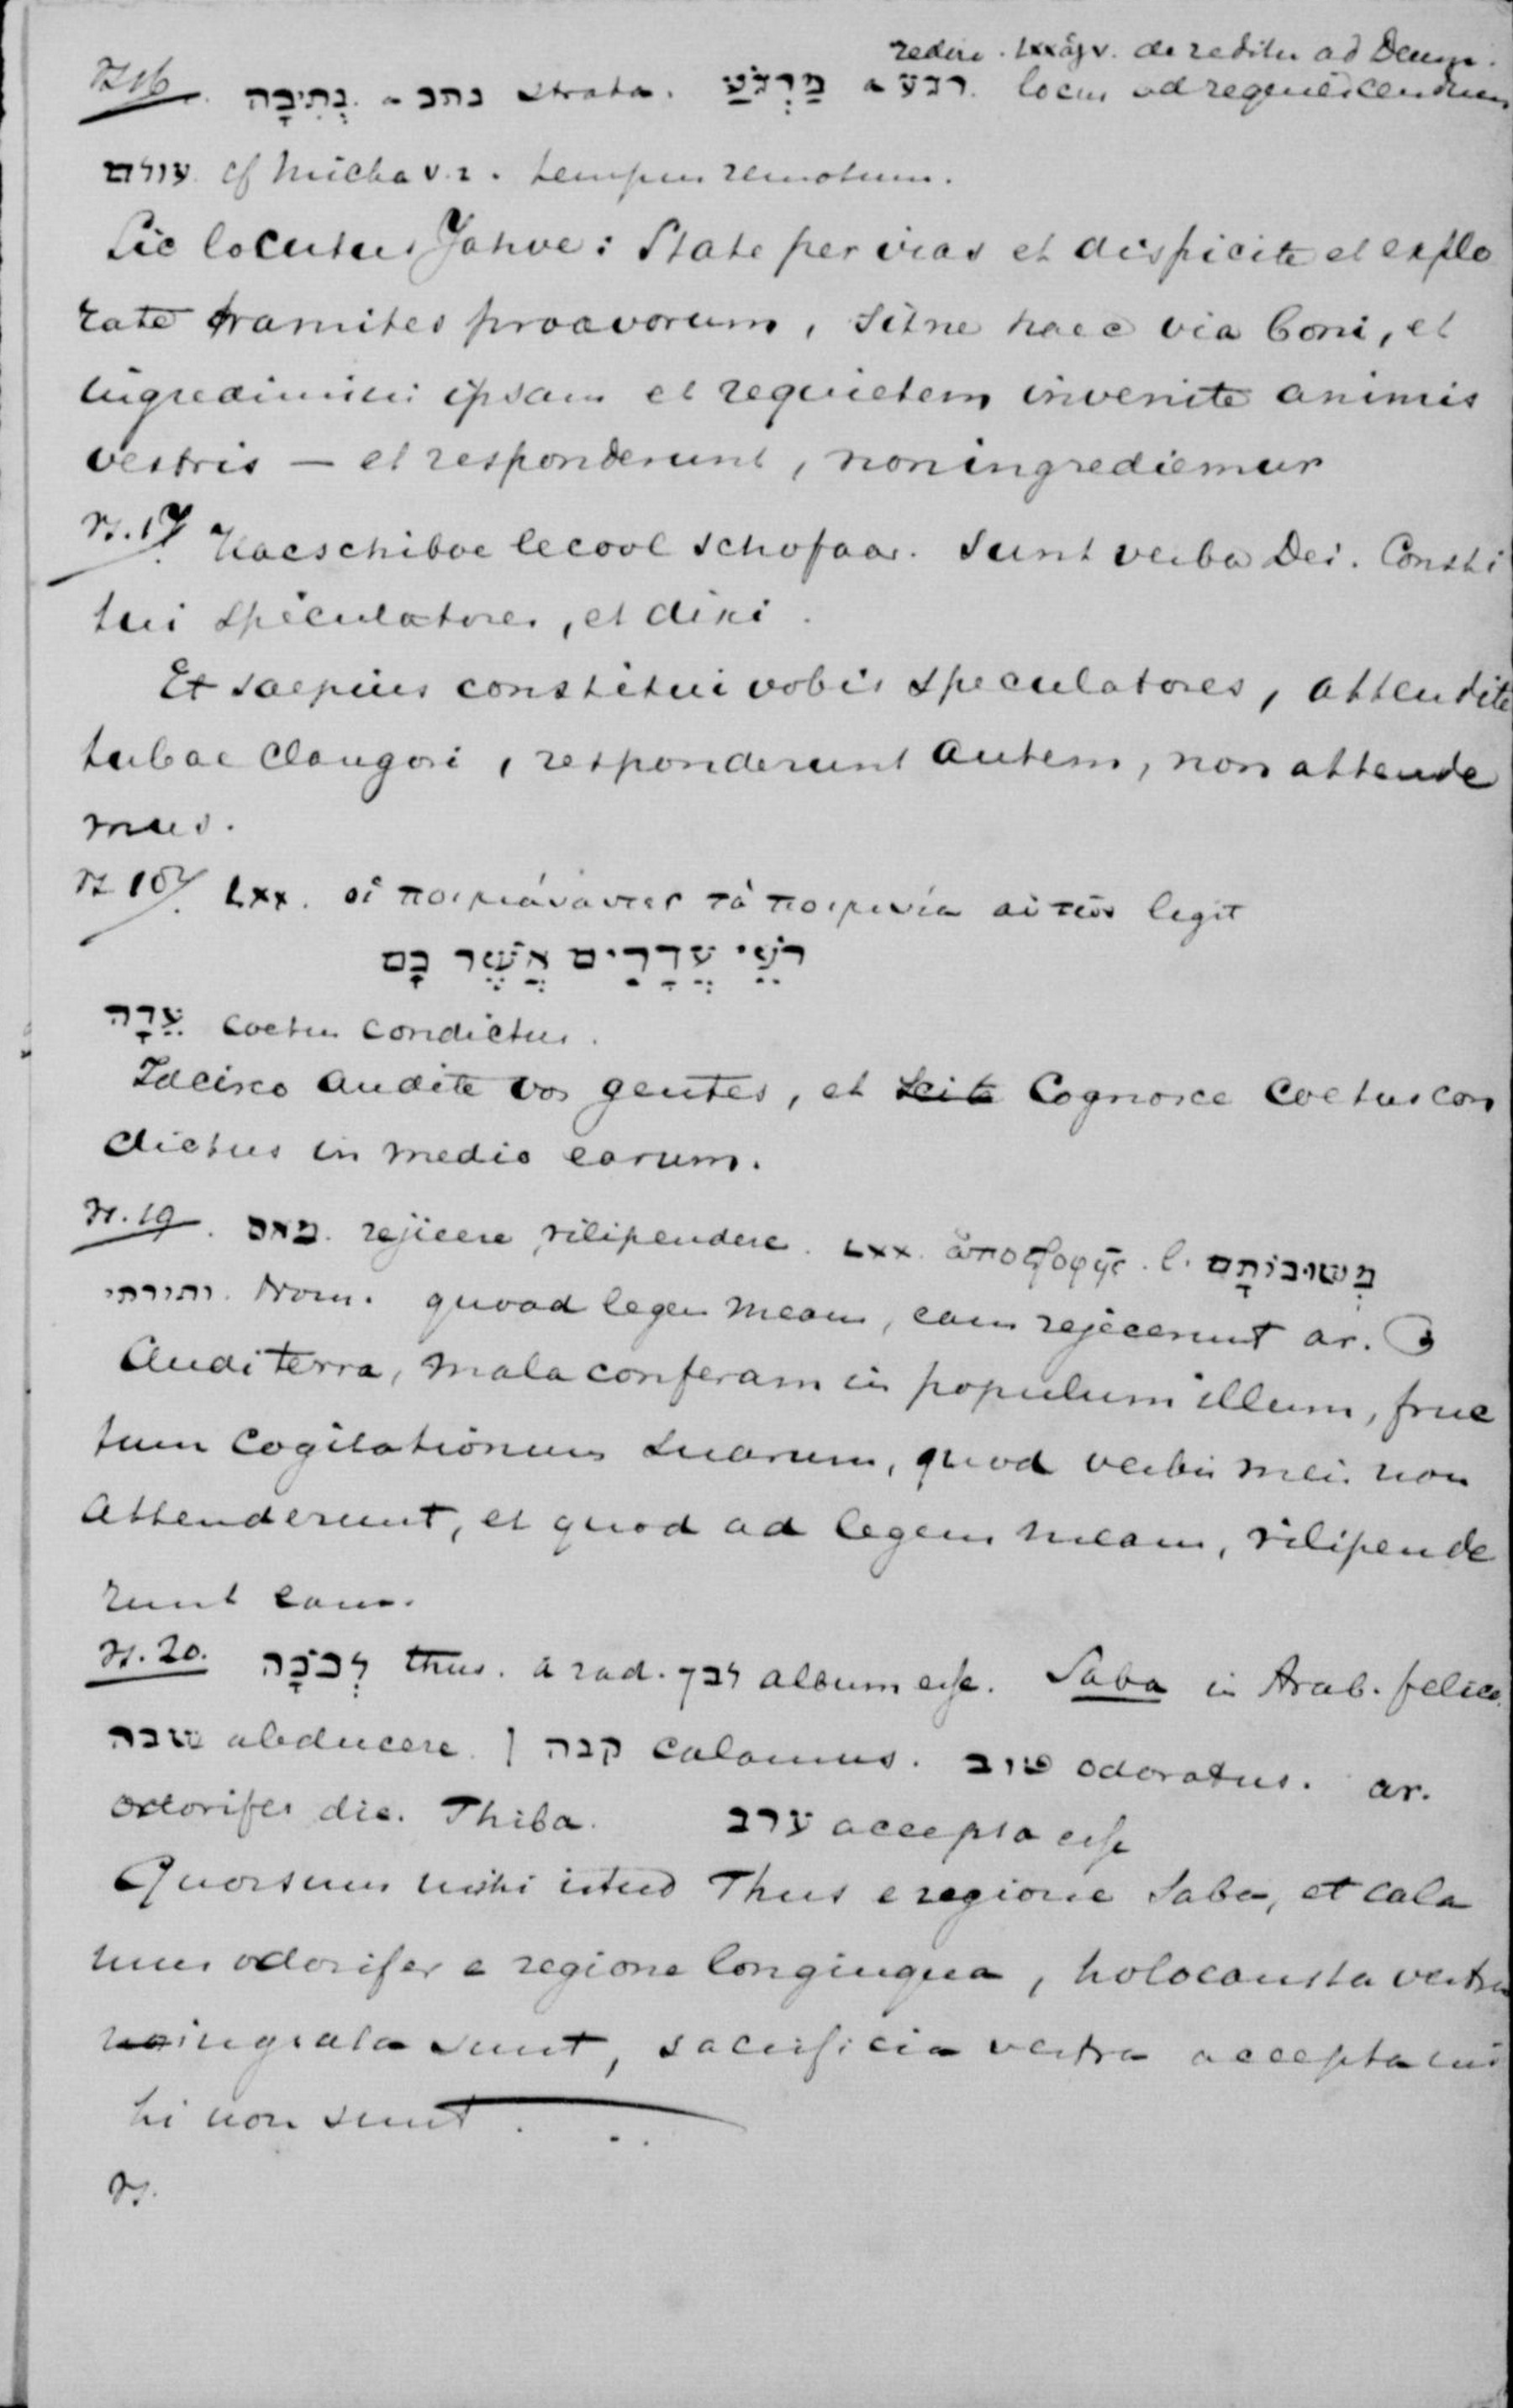 redire. Lxx ἁγν. de reditu ad Deum.
Vs 16. נְתִיבָה. a נתב strata. מַרְגֹּעַ a רגע. locus ad requiescendum
עולם. cf Micha v. 2. tempus remotum.
Sic locutus Jahve: State per vias et dispicite et explo
rate tramites proavorum, sitne haec via boni, et
ingredimini ipsam et requietem invenite animis
vestris — et responderunt, non ingrediemur
Vs. 17. Hacschiboe lecool schofaar. sunt verba Dei. Consti
tui speculatores, et dixi.
Et saepius constitui vobis speculatores, attendite
tubae clangori, responderunt autem, non attende
mus.
Vs 18. Lxx. οἱ ποιμαίνοντες τὰ ποιμνία αὐτῶν legit
רֹעֵי עֲדָרִים אֲשֶׁר בָּם
עֵדָה coetus condictus.
Idcirco audite vos gentes, et scite Cognosce coetus con
dictus in medio earum.
Vs. 19. מאס. rejicere, vilipendere. Lxx. ἀποστροφῆς. l. מְשׁוּבוֹתָם
ותורתי. Nom. quoad legem meam, eam rejecerunt ar. و
Audi terra, mala conferam in populum illum, fruc
tum cogitationum suarum, quod verbis meis non
attenderunt, et quod ad legem meam, vilipende
runt eam.
Vs. 20. לְבֹנָה thus. a rad. לבן album esse. Saba in Arab. felice.
שבה abducere. | קנה calamus. טוב odoratus. ar.
odorifer dic. Thiba. ערב accepta esse
Quorsum mihi istud Thus e regione Saba, et cala
mus odorifer e regione longinqua, holocausta vestra
no ingrata sunt, sacrificia vestra accepta mi
hi non sunt.
Vs.